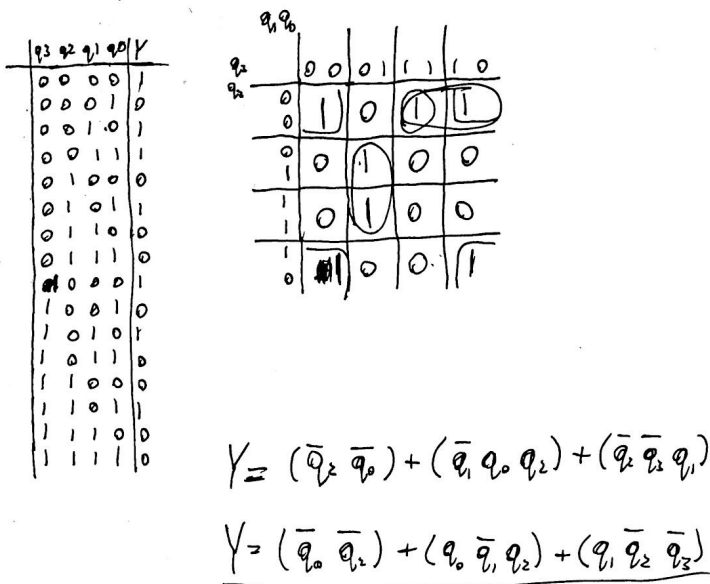 q3 q2 q1 q0 Y
0 0 0 0 1
0 0 0 1 0
0 0 1 0 1
0 0 1 1 1
0 1 0 0 0
0 1 0 1 1
0 1 1 0 0
0 1 1 1 0
1 0 0 0 1
1 0 0 1 0
1 0 1 0 1
1 0 1 1 0
1 1 0 0 0
1 1 0 1 1
1 1 1 0 0
1 1 1 1 0
q₁ q₀
00 01 11 10
00 1 0 1 1
01 0 1 0 0
11 0 1 0 0
10 1 0 0 1
Y = (q̅₂ q̅₀) + (q̅₁ q₀ q₂) + (q̅₂ q̅₃ q₁)
Y = (q̅₀ q̅₂) + (q₀ q̅₁ q₂) + (q₁ q̅₂ q̅₃)